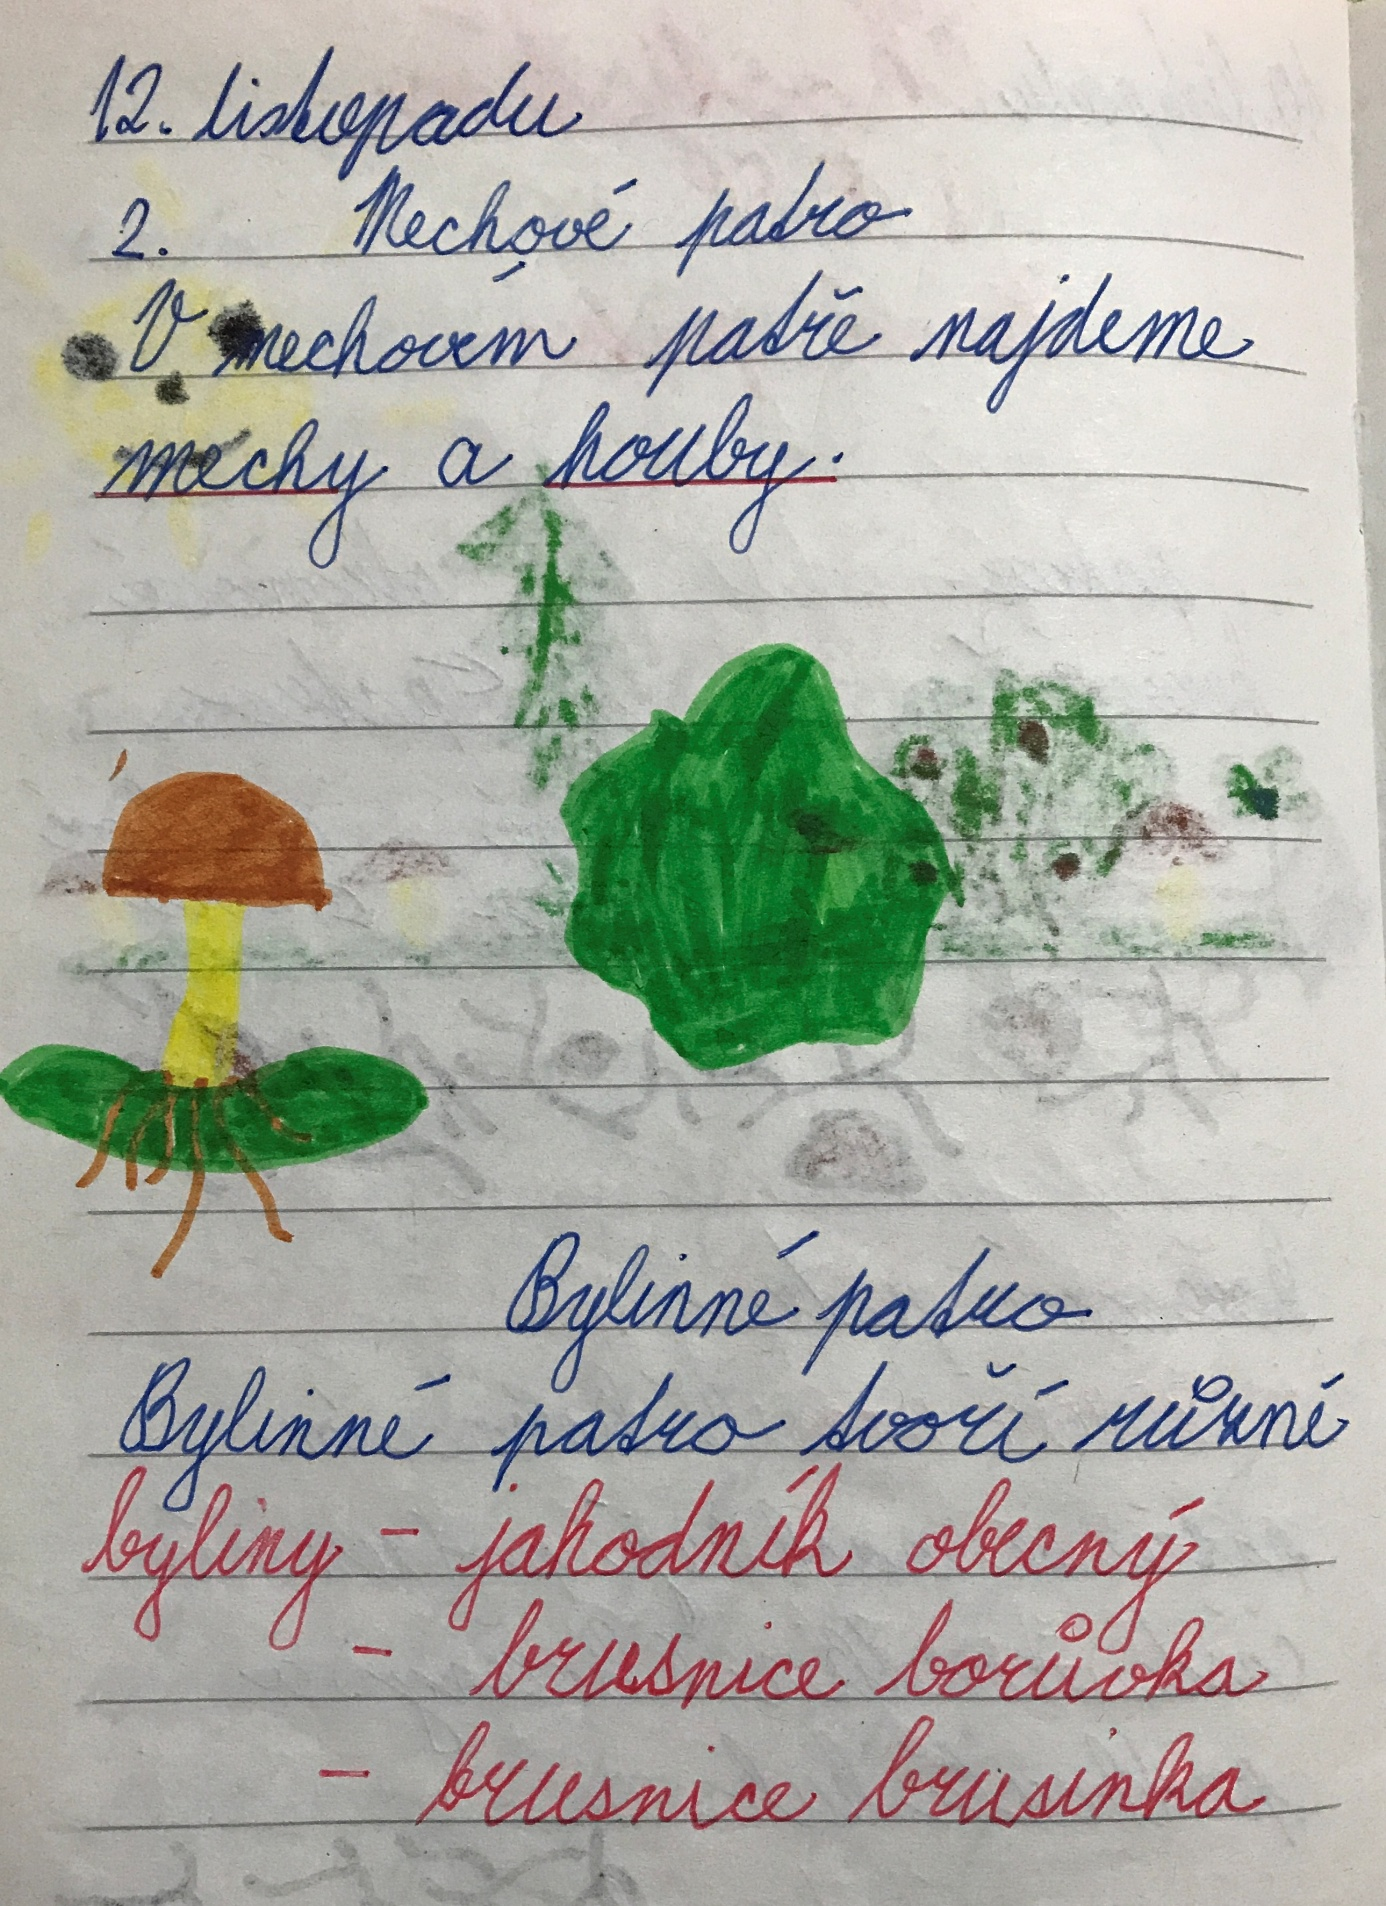 12. listopadu
2. Mechové patro
V mechovém patře najdeme
mechy a houby.
Bylinné patro
Bylinné patro tvoří různé
byliny - jahodník obecný
- brusnice borůvka
- brusnice brusinka